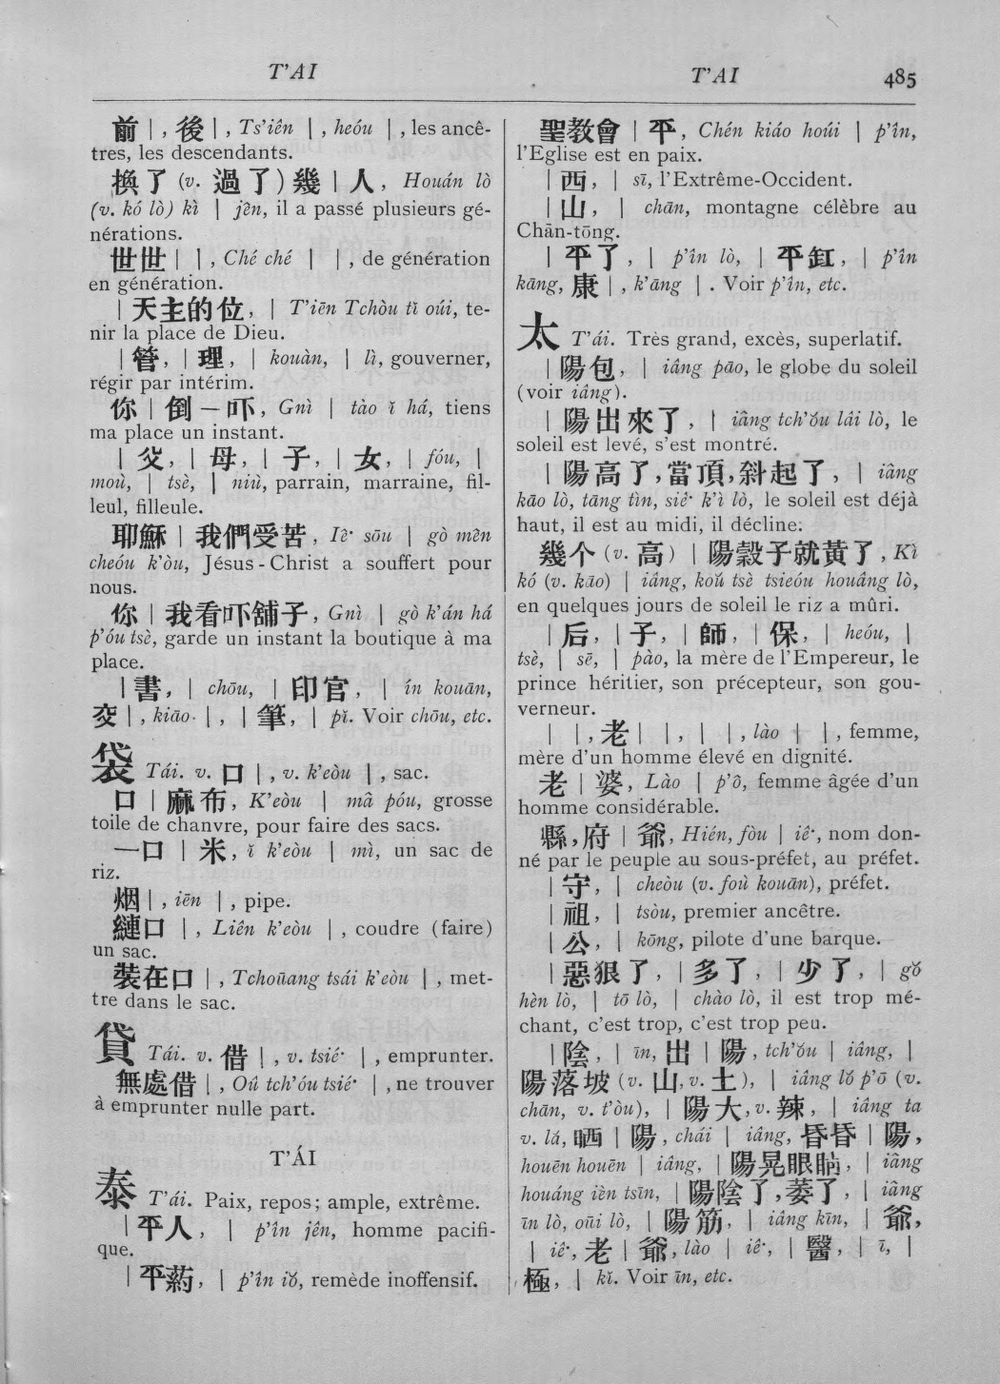 T’AI
T’AI
485
前 | , 後 | , Ts’iên | , heóu | , les ancê-
tres, les descendants.
換了 (v. 過了) 幾 | 人, Houán lò
(v. kó lò) kì | jên, il a passé plusieurs gé-
nérations.
世世 | | , Ché ché | | , de génération
en génération.
| 天主的位, | T’iēn Tchòu tĭ oúi, te-
nir la place de Dieu.
| 管, | 理, | kouàn, | lì, gouverner,
régir par intérim.
你 | 倒一吓, Gnì | tào ĭ há, tiens
ma place un instant.
| 父, | 母, | 子, | 女, | fóu, |
moù, | tsè, | niù, parrain, marraine, fil-
leul, filleule.
耶穌 | 我們受苦, Iê· sōu | gò mên
cheóu k’òu, Jésus-Christ a souffert pour
nous.
你 | 我看吓舖子, Gnì | gò k’án há
p’óu tsè, garde un instant la boutique à ma
place.
| 書, | chōu, | 印官, | ín kouān,
交 | , kiāo· | , | 筆, | pĭ. Voir chōu, etc.
袋 Tái. v. 口 | , v. k’eòu | , sac.
口 | 麻布, K’eòu | mâ póu, grosse
toile de chanvre, pour faire des sacs.
一口 | 米, ĭ k’eòu | mì, un sac de
riz.
烟 | , iēn | , pipe.
縺口 | , Liên k’eòu | , coudre (faire)
un sac.
裝在口 | , Tchoūang tsái k’eòu | , met-
tre dans le sac.
貸 Tái. v. 借 | , v. tsié· | , emprunter.
無處借 | , Oû tch’óu tsié· | , ne trouver
à emprunter nulle part.
T’ÁI
泰 T’ái. Paix, repos; ample, extrême.
| 平人, | p’în jên, homme pacifi-
que.
| 平葯, | p’în iŏ, remède inoffensif.
聖教會 | 平, Chén kiáo hoúi | p’în,
l’Eglise est en paix.
| 西, | sī, l’Extrême-Occident.
| 山, | chān, montagne célèbre au
Chān-tōng.
| 平了, | p’în lò, | 平缸, | p’în
kāng, 康 | , k’āng | . Voir p’în, etc.
太 T’ái. Très grand, excès, superlatif.
| 陽包, | iâng pāo, le globe du soleil
(voir iâng).
| 陽出來了, | iâng tch’ŏu lâi lò, le
soleil est levé, s’est montré.
| 陽高了, 當頂, 斜起了, | iâng
kāo lò, tāng tìn, siê· k’ì lò, le soleil est déjà
haut, il est au midi, il décline:
幾个 (v. 高) | 陽穀子就黃了, Kì
kó (v. kāo) | iâng, koŭ tsè tsieóu houâng lò,
en quelques jours de soleil le riz a mûri.
| 后, | 子, | 師, | 保, | heóu, |
tsè, | sē, | pào, la mère de l’Empereur, le
prince héritier, son précepteur, son gou-
verneur.
| | , 老 | | , | | , lào | | , femme,
mère d’un homme élevé en dignité.
老 | 婆, Lào | p’ô, femme âgée d’un
homme considérable.
縣, 府 | 爺, Hién, fòu | iê·, nom don-
né par le peuple au sous-préfet, au préfet.
| 守, | cheòu (v. foù kouān), préfet.
| 祖, | tsòu, premier ancêtre.
| 公, | kōng, pilote d’une barque.
| 惡狠了, | 多了, | 少了, | gŏ
hèn lò, | tō lò, | chào lò, il est trop mé-
chant, c’est trop, c’est trop peu.
| 陰, | īn, 出 | 陽, tch’ŏu | iâng, |
陽落坡 (v. 山, v. 土), | iâng lŏ p’ō (v.
chān, v. t’òu), | 陽大, v. 辣, | iâng ta
v. lá, 晒 | 陽, chái | iâng, 昏昏 | 陽,
houēn houēn | iâng, | 陽晃眼睛, | iâng
houáng ièn tsīn, | 陽陰了, 萎了, | iâng
īn lò, oūi lò, | 陽筋, | iâng kīn, | 爺,
| iê·, 老 | 爺, lào | iê·, | 醫, | ī, |
極, | kĭ. Voir īn, etc.